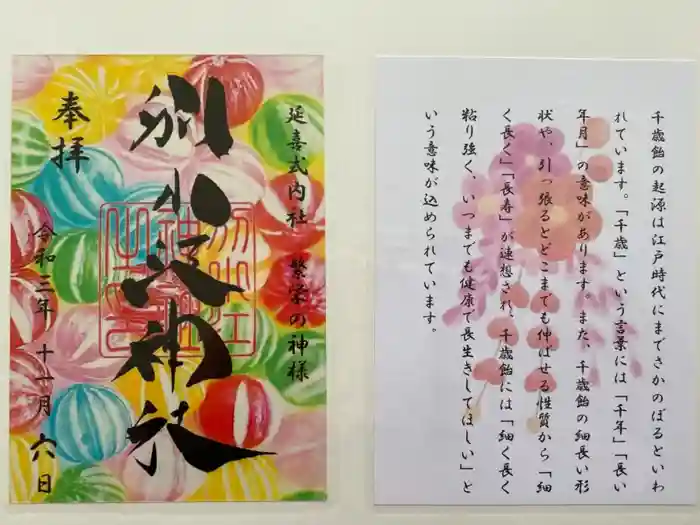 延喜式内社 繁栄の神様
別小江神社
奉拝
令和三年 十一月 六日
千歳飴の起源は江戸時代にまでさかのぼるといわ
れています。「千歳」という言葉には「千年」「長い
年月」の意味があります。また、千歳飴の細長い形
状や、引っ張るとどこまでも伸ばせる性質から「細
く長く」「長寿」が連想され、千歳飴には「細く長く
粘り強く、いつまでも健康で長生きしてほしい」と
いう意味が込められています。